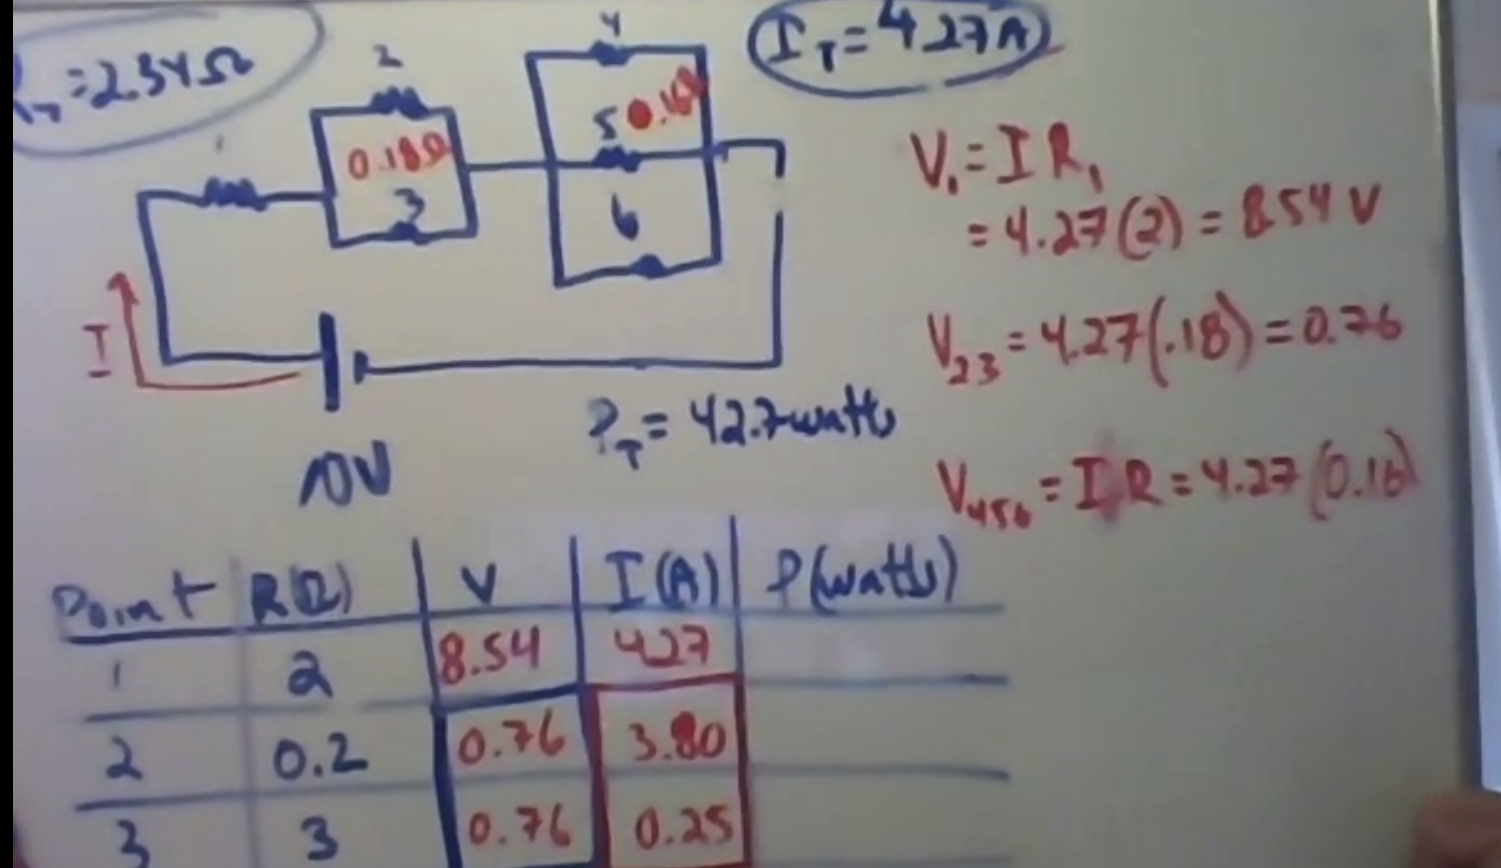 =2.34Ω
I_T=4.27A
1
2
0.18Ω
3
4
5 0.16
6
I
10V
P_T = 42.7 watts
V₁ = I R₁
= 4.27(2) = 8.54 V
V₂₃ = 4.27(.18) = 0.76
V₄₅₆ = I R = 4.27 (0.16)
Point R(Ω) V I(A) P(watts)
1 2 8.54 4.27
2 0.2 0.76 3.80
3 3 0.76 0.25